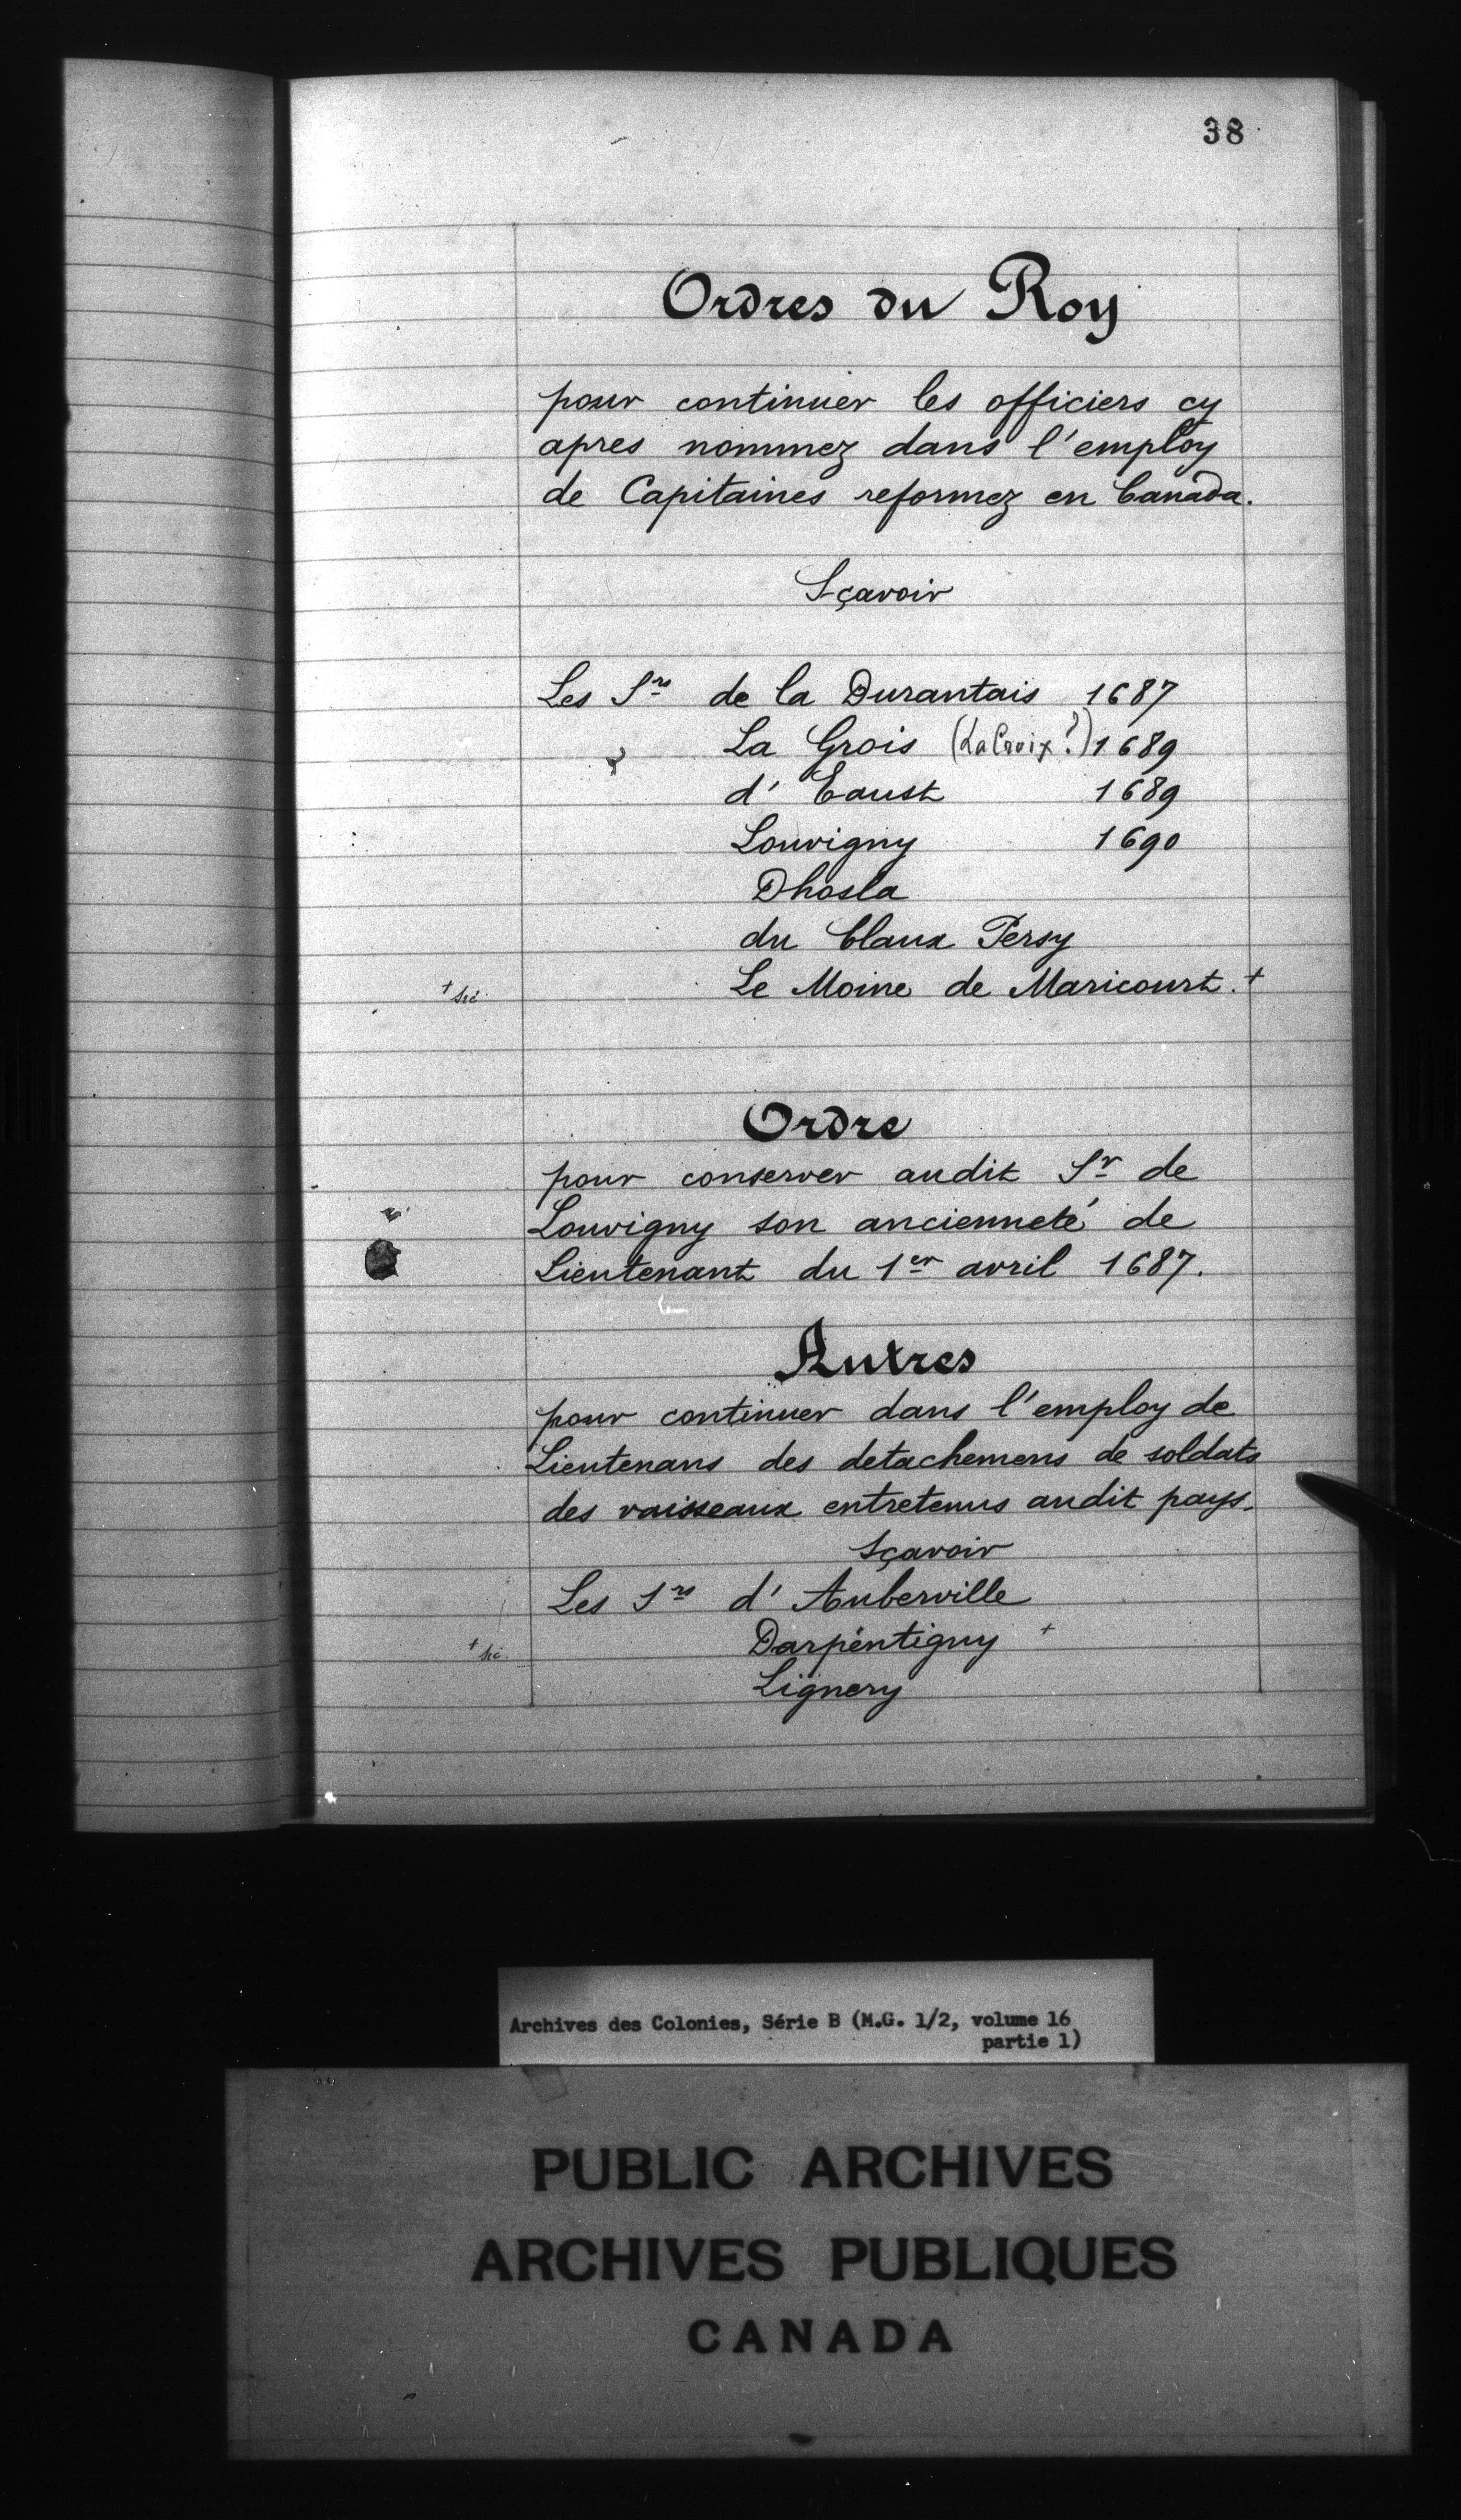 38
Ordres du Roy
pour continuer les officiers cy
apres nommez dans l'employ
de Capitaines reformez en Canada.
Sçavoir
Les Srs de la Durantais 1687
La Grois (La Croix?) 1689
d' Eaust 1689
Louvigny 1690
Dhosla
du Claux Persy
+ sic Le Moine de Maricourt. +
Ordre
pour conserver audit Sr de
Louvigny son ancienneté de
Lieutenant du 1er avril 1687.
Autres
pour continuer dans l'employ de
Lieutenans des detachemens de soldats
des vaisseaux entretenus audit pays.
Sçavoir
Les Srs d' Auberville
+ sic Darpentigny +
Lignery
Archives des Colonies, Série B (M.G. 1/2, volume 16
partie 1)
PUBLIC ARCHIVES
ARCHIVES PUBLIQUES
CANADA